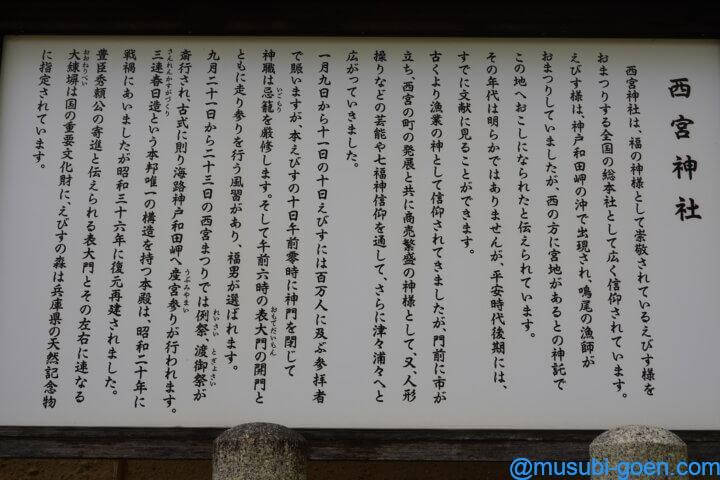 西宮神社
西宮神社は、福の神様として崇敬されているえびす様を
おまつりする全国の総本社として広く信仰されています。
えびす様は、神戸和田岬の沖で出現され、鳴尾の漁師が
おまつりしていましたが、西の方に宮地があるとの神託で
この地へおこしになられたと伝えられています。
その年代は明らかではありませんが、平安時代後期には、
すでに文献に見ることができます。
古くより漁業の神として信仰されてきましたが、門前に市が
立ち、西宮の町の発展と共に商売繁盛の神様として、又、人形
操りなどの芸能や七福神信仰を通して、さらに津々浦々へと
広がっていきました。
一月九日から十一日の十日えびすには百万人に及ぶ参拝者
で賑いますが、本えびすの十日午前零時に神門を閉じて
神職は忌籠を厳修します。そして午前六時の表大門の開門と
ともに走り参りを行う風習があり、福男が選ばれます。
九月二十一日から二十三日の西宮まつりでは例祭、渡御祭が
斎行され、古式に則り海路神戸和田岬へ産宮参りが行われます。
三連春日造という本邦唯一の構造を持つ本殿は、昭和二十年に
戦禍にあいましたが昭和三十六年に復元再建されました。
豊臣秀頼公の寄進と伝えられる表大門とその左右に連なる
大練塀は国の重要文化財に、えびすの森は兵庫県の天然記念物
に指定されています。
@musubi-goen.com